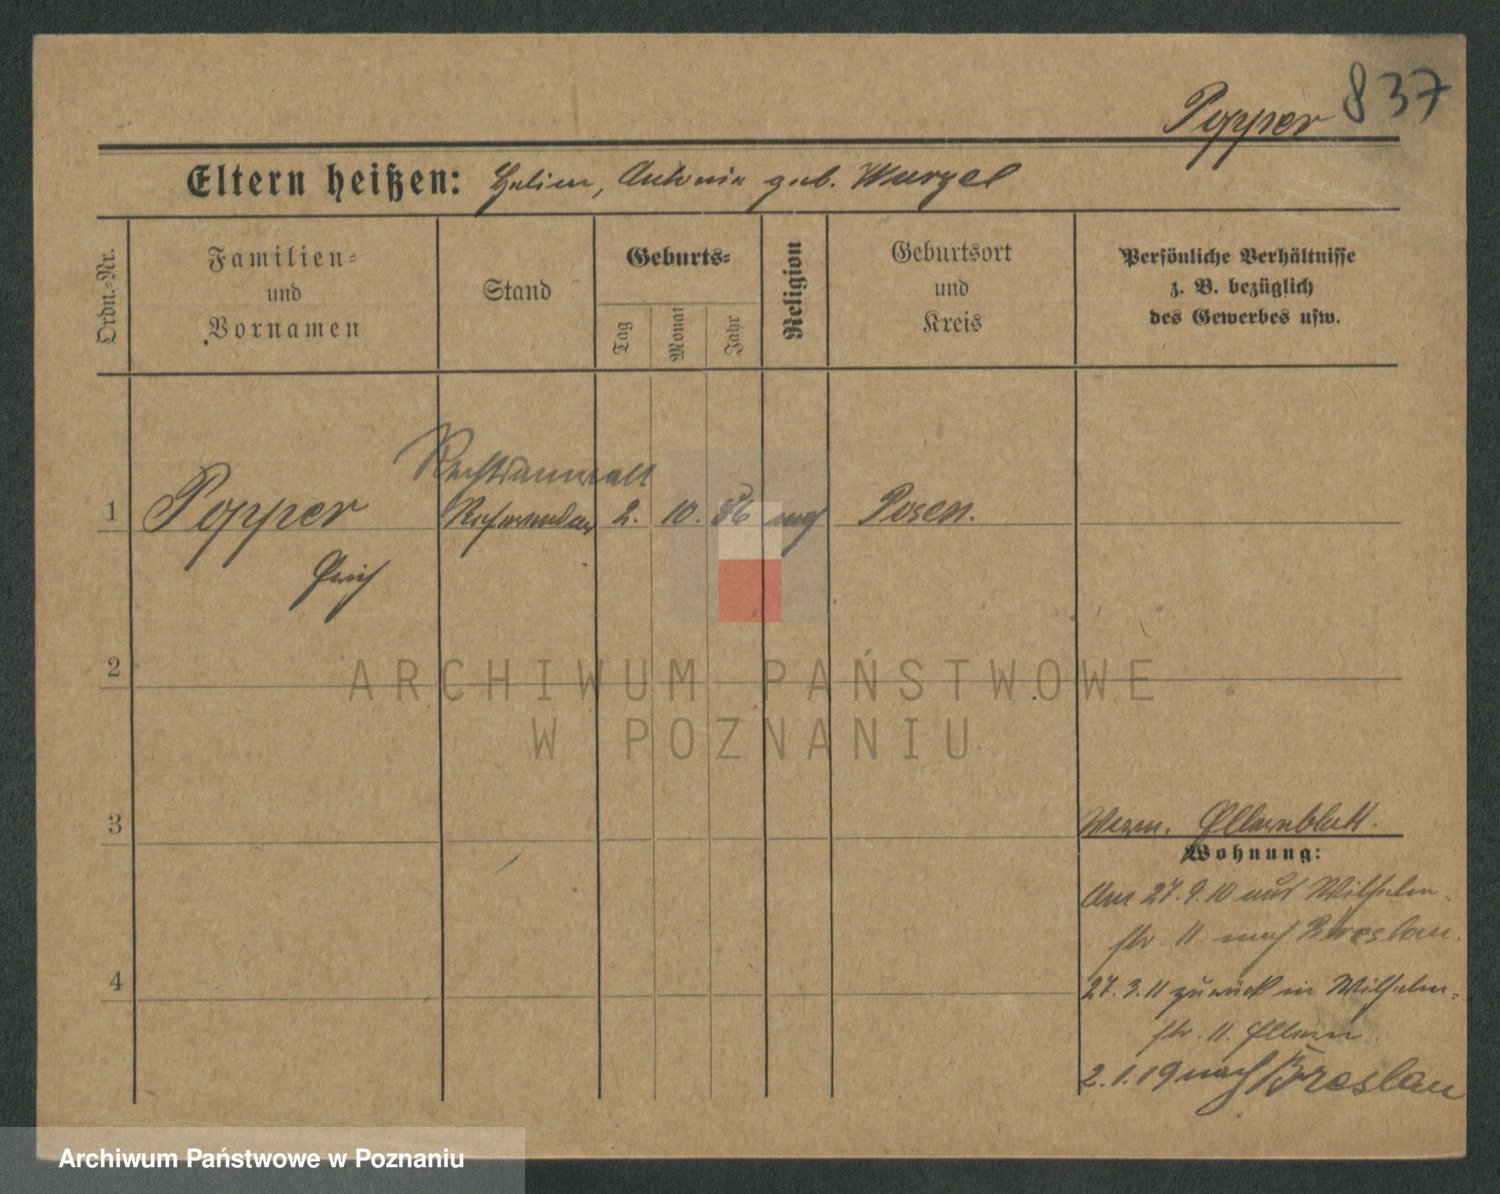 837
Popper
Eltern heißen: Julius, Antonie geb. Wurzel
Ordn.-Nr.
Familien-
und
Vornamen
Stand
Geburts-
Tag
Monat
Jahr
Religion
Geburtsort
und
Kreis
Persönliche Verhältnisse
z. B. bezüglich
des Gewerbes usw.
Rechtsanwalt
1 Popper Referendar 2. 10. 86 Posen.
Erich
2
3
4
Elternblatt.
Wohnung:
Am 27.9.10 aus Wilhelm-
str. 11. nach Breslau.
27.3.11 zurück in Wilhelm-
str. 11. Eltern.
2.1.19 nach Breslau
ARCHIWUM PAŃSTWOWE
W POZNANIU
Archiwum Państwowe w Poznaniu